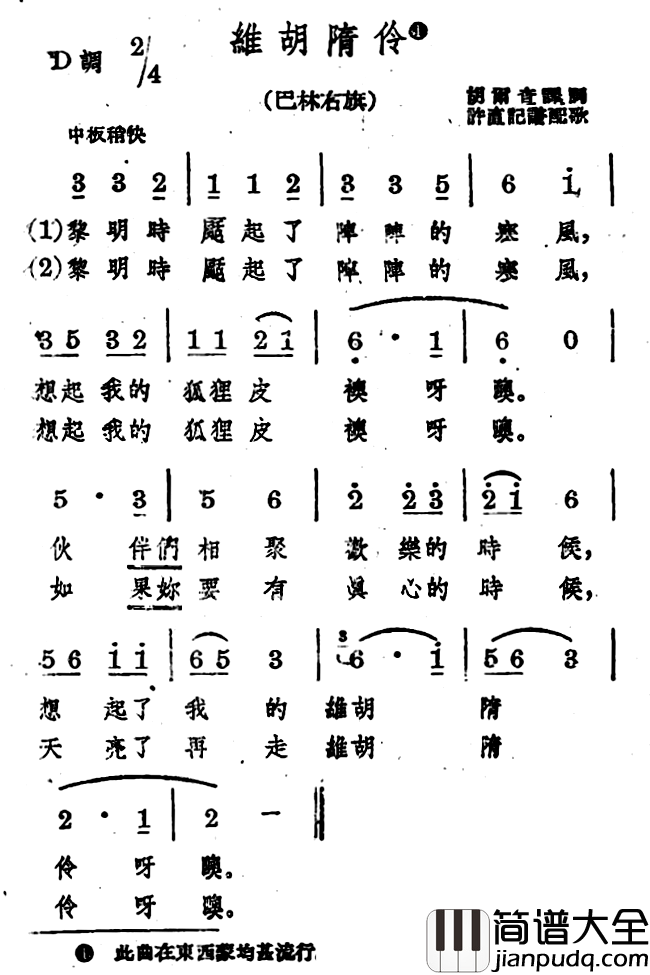 維胡隋伶①
D調 2/4
(巴林右旗)
胡爾查譯詞
許直記譜配歌
中板稍快
3 3 2 | 1 1 2 | 3 3 5 | 6 i |
(1)黎明時颳起了陣陣的寒風,
(2)黎明時颳起了陣陣的寒風,
35 32 | 11 2i | 6 · 1 | 6 0 |
想起我的狐狸皮襖呀噢。
想起我的狐狸皮襖呀噢。
5 · 3 | 5 6 | 2 23 | 2i 6 |
伙伴們相聚歡樂的時候,
如果妳要有眞心的時候,
56 ii | 65 3 | 3 6 · i | 56 3 |
想起了我的維胡隋
天亮了再走維胡隋
2 · 1 | 2 — ‖
伶呀噢。
伶呀噢。
① 此曲在東西蒙均甚流行
简谱大全
www.jianpudq.com